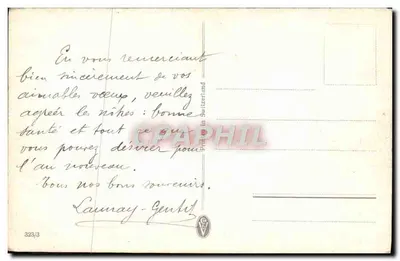 En vous remerciant
bien sincèrement de vos
aimables vœux, veuillez
agréer les nôtres : bonne
santé et tout ce que
vous pouvez désirer pour
l'an nouveau.
Tous nos bons souvenirs.
Launay-Gentil
323/3
in Switzerland
CPAPHIL